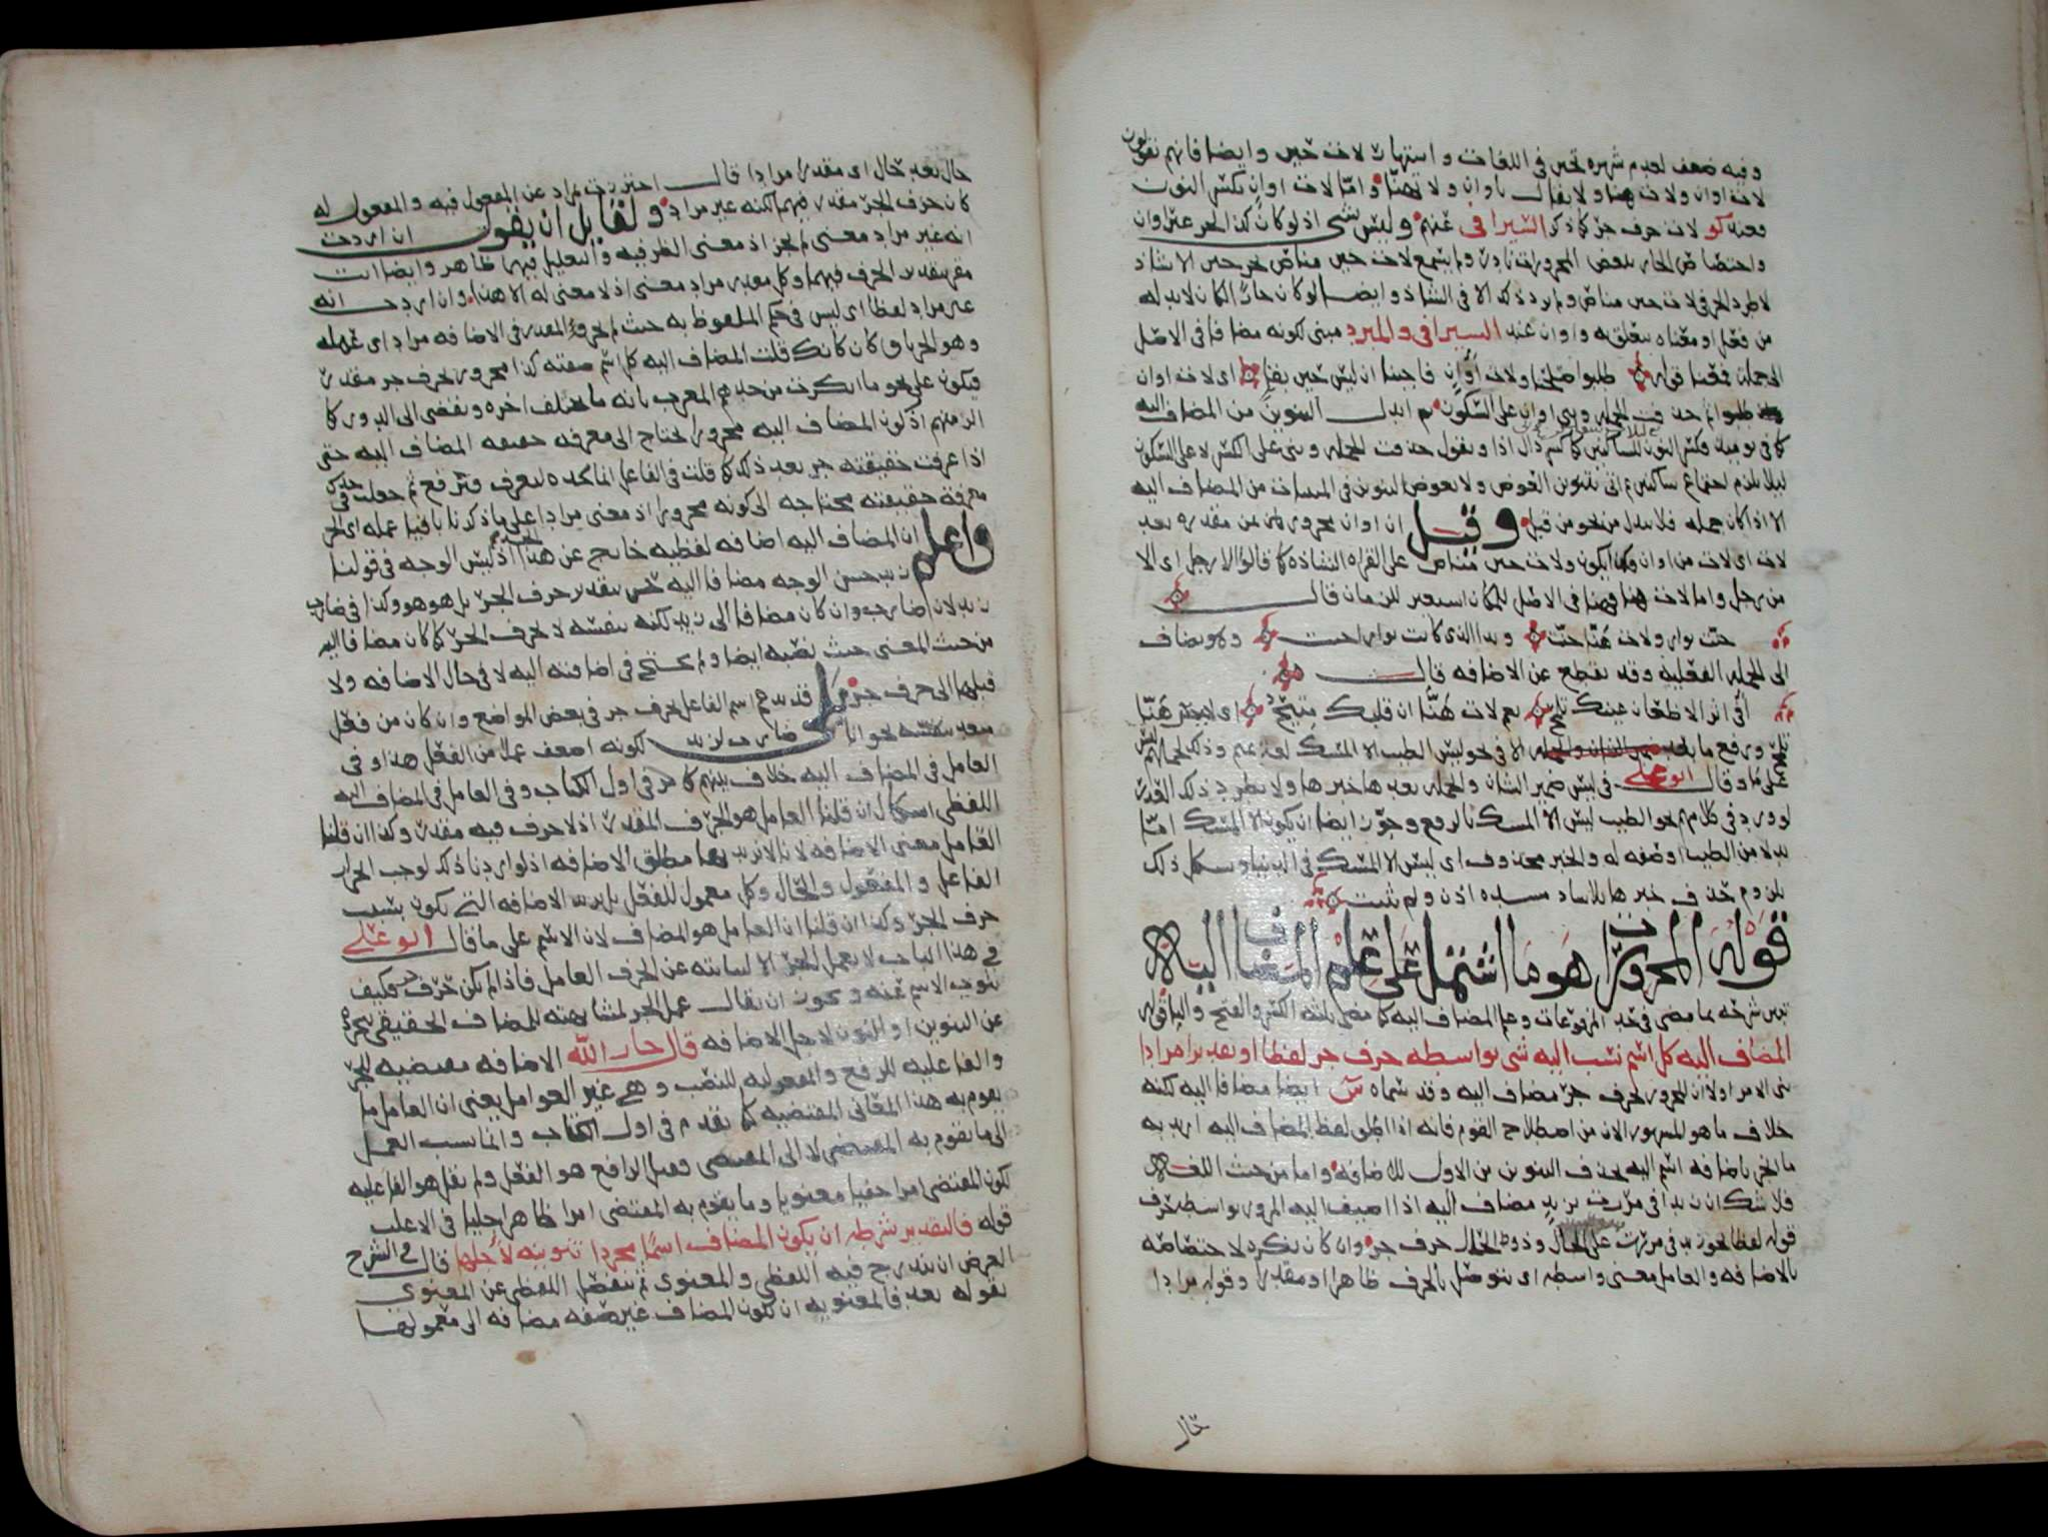 وفيه ضعف لعدم شهرة تحين في اللغات واشتهار لات حين وايضا فانهم يقولون
لات اوان ولات هنا ولا يقال تاوان ولا تهنا واما لات اوان بكسر النون
فعند كو لات حرف جر كما ذكر السيرافي عنهم وليس بشي اذ لو كان كذا لجر غير اوان
واختصاص الجار ببعض المجرورات نادر ولم يسمع لات حين مناص بجر حين الا شاذا
من فعل او معناه يتعلق به واوان عند السيرافي والمبرد مبني لكونه مضافا في الاصل
الى جملة فمعنا قوله طلبوا صلحنا ولات اوان فاجبنا ان ليس حين بقا اي لات اوان
طلبوا ثم حذفت الجملة وبني اوان على السكون ثم ابدل التنوين من المضاف اليه
كما في يومئذ فكسر النون للساكنين كما كسر ذال اذ او نقول حذفت الجملة وبني على الكسر لا على السكون
ليلا يلزم اجتماع ساكنين ثم اتى بتنوين العوض ولا يعوض التنوين في المبنيات من المضاف اليه
الا اذا كان جملة فلا يبدل من نحو من قبل وقيل ان اوان مجرور بمن مقدرة بعد
لات اي لات من اوان ولات حين مناص على القراة الشاذة كما قالوا الا رجل اي الا
من رجل واما لات هنا فهنا في الاصل للمكان استعير للزمان قال
حنت نوار ولات هنا حنت وبدا الذي كانت نوار اجنت وهو مضاف
الى الجملة الفعلية وقد يقطع عن الاضافة قال
أفي اثر الاظعان عينك تلمح نعم لات هنا ان قلبك متيح اي ليس هنا
على ما وقال ابو علي في ليس ضمير الشان والجملة بعدها خبرها ولا يطرد ذلك العذر
لورود في كلامهم نحو الطيب ليس الا المسك بالرفع وجوز ايضا ان يكون الا المسك اما
بدلا من الطيب او صفة له والخبر محذوف اي ليس الا المسك في الدنيا ويشكل ذلك
بلزوم حذف خبرها بلا ساد مسده اذن ولم يثبت
قوله المجرورات هو ما اشتمل على علم المضاف اليه
تبين شرحه بما مضى في حد المرفوعات وعلم المضاف اليه كما مضى ثلثة الكسر والفتح واليا قوله
المضاف اليه كل اسم نسب اليه شي بواسطة حرف جر لفظا او تقديرا مرادا
بني الامر اولا ان المجرور بحرف جر مضاف اليه وقد سماه س ايضا مضافا اليه لكنه
خلاف ما هو المشهور الان من اصطلاح القوم فانه اذا اطلق لفظ المضاف اليه اريد به
ما انجر باضافة اسم اليه بحذف التنوين من الاول للاضافة واما من حيث اللغة
فلا شك ان زيدا في مررت بزيد مضاف اليه اذا اضيف اليه المرور بواسطة حرف
بالاضافة والعامل معنى واسطة اي يتوصل بالحرف ظاهرا او مقدرا وقوله مرادا
حال
حال بعد حال اي مقدرا مرادا قال احترزت بمراد عن المفعول فيه والمفعول له
كان حرف الجر مقدر فيهما لكنه غير مراد ولقايل ان يقول ان اردت
انه غير مراد معنى لم يجز اذ معنى الظرفية والتعليل فيهما ظاهر وايضا انت
مقر بتقدير الحرف فيهما وكل مقدر مراد معنى اذ لا معنى له الا هذا وان اردت انه
غير مراد لفظا اي ليس في حكم الملفوظ به حيث لم يجر والمقدر في الاضافة مراد اي عمله
وهو الجر باق كان كانك قلت المضاف اليه كل اسم صفته كذا مجرور بحرف جر مقدر
فيكون على نحو ما انكرت من حدهم المعرب بانه ما يختلف اخره ويفضي الى الدور كما
الزمتهم اذ كون المضاف اليه مجرورا يحتاج الى معرفة حقيقة المضاف اليه حتى
اذا عرفت حقيقته جر بعد ذلك كما قلت في الفاعل انما نحده ليعرف فيرفع ثم جعلت في حدك
معرفة حقيقته محتاجة الى كونه مجرورا اذ معنى مرادا على ما ذكرنا باقيا عمله اي الجر
واعلم ان المضاف اليه اضافة لفظية خارج عن هذا الحد اذ ليس الوجه في قولنا
زيد حسن الوجه مضافا اليه حسن بتقدير حرف الجر بل هو هو وكذا في ضارب
زيد لان ضاربا وان كان مضافا الى زيد لكنه بنفسه لا بحرف الجر كما كان مضافا اليه
من حيث المعنى حيث نصبه ايضا ولم يحتج في اضافته اليه لا في حال الاضافة ولا
قبلها الى حرف جر بلى قد يدعم اسم الفاعل بحرف جر في بعض المواضع وان كان من فعل
متعد بنفسه نحو انا ضارب لزيد لكونه اضعف عملا من الفعل هذا وفي
العامل في المضاف اليه خلاف بينهم كما مر في اول الكتاب وفي العامل في المضاف اليه
اللفظي اشكال ان قلنا العامل هو الحرف المقدر اذ لا حرف فيه مقدر وكذا ان قلنا
العامل معنى الاضافة لانا لا نريد بها مطلق الاضافة اذ لو اردنا ذلك لوجب انجرار
الفاعل والمفعول والحال وكل معمول للفعل بل نريد الاضافة التي تكون بسبب
حرف الجر وكذا ان قلنا ان العامل هو المضاف لان الاسم على ما قال ابو علي
في هذا الباب لا يعمل الجر الا لنيابته عن الحرف العامل فاذا لم يكن حرف جر فكيف
ينوب الاسم عنه ويجوز ان يقال عمل الجر لمشابهته للمضاف الحقيقي بتجرده
عن التنوين او النون لاجل الاضافة قال جار الله الاضافة مقتضية للجر
والفاعلية للرفع والمفعولية للنصب وهي غير العوامل يعني ان العامل ما
يقوم به هذا المعاني المقتضية كما تقدم في اول الكتاب والمناسب العمل
الى ما يقوم به المقتضي لا الى المقتضي فقيل الرافع هو الفعل ولم يقل هو الفاعلية
لكون المقتضي امرا خفيا معنويا وما يقوم به المقتضي امرا ظاهرا جليا في الاغلب
قوله فالتقدير شرطه ان يكون المضاف اسما مجردا تنوينه لاجلها قال في الشرح
الغرض ان يندرج فيه اللفظي والمعنوي ثم يفصل اللفظي عن المعنوي
بقوله بعد فالمعنوية ان يكون المضاف غير صفة مضافة الى معمولها